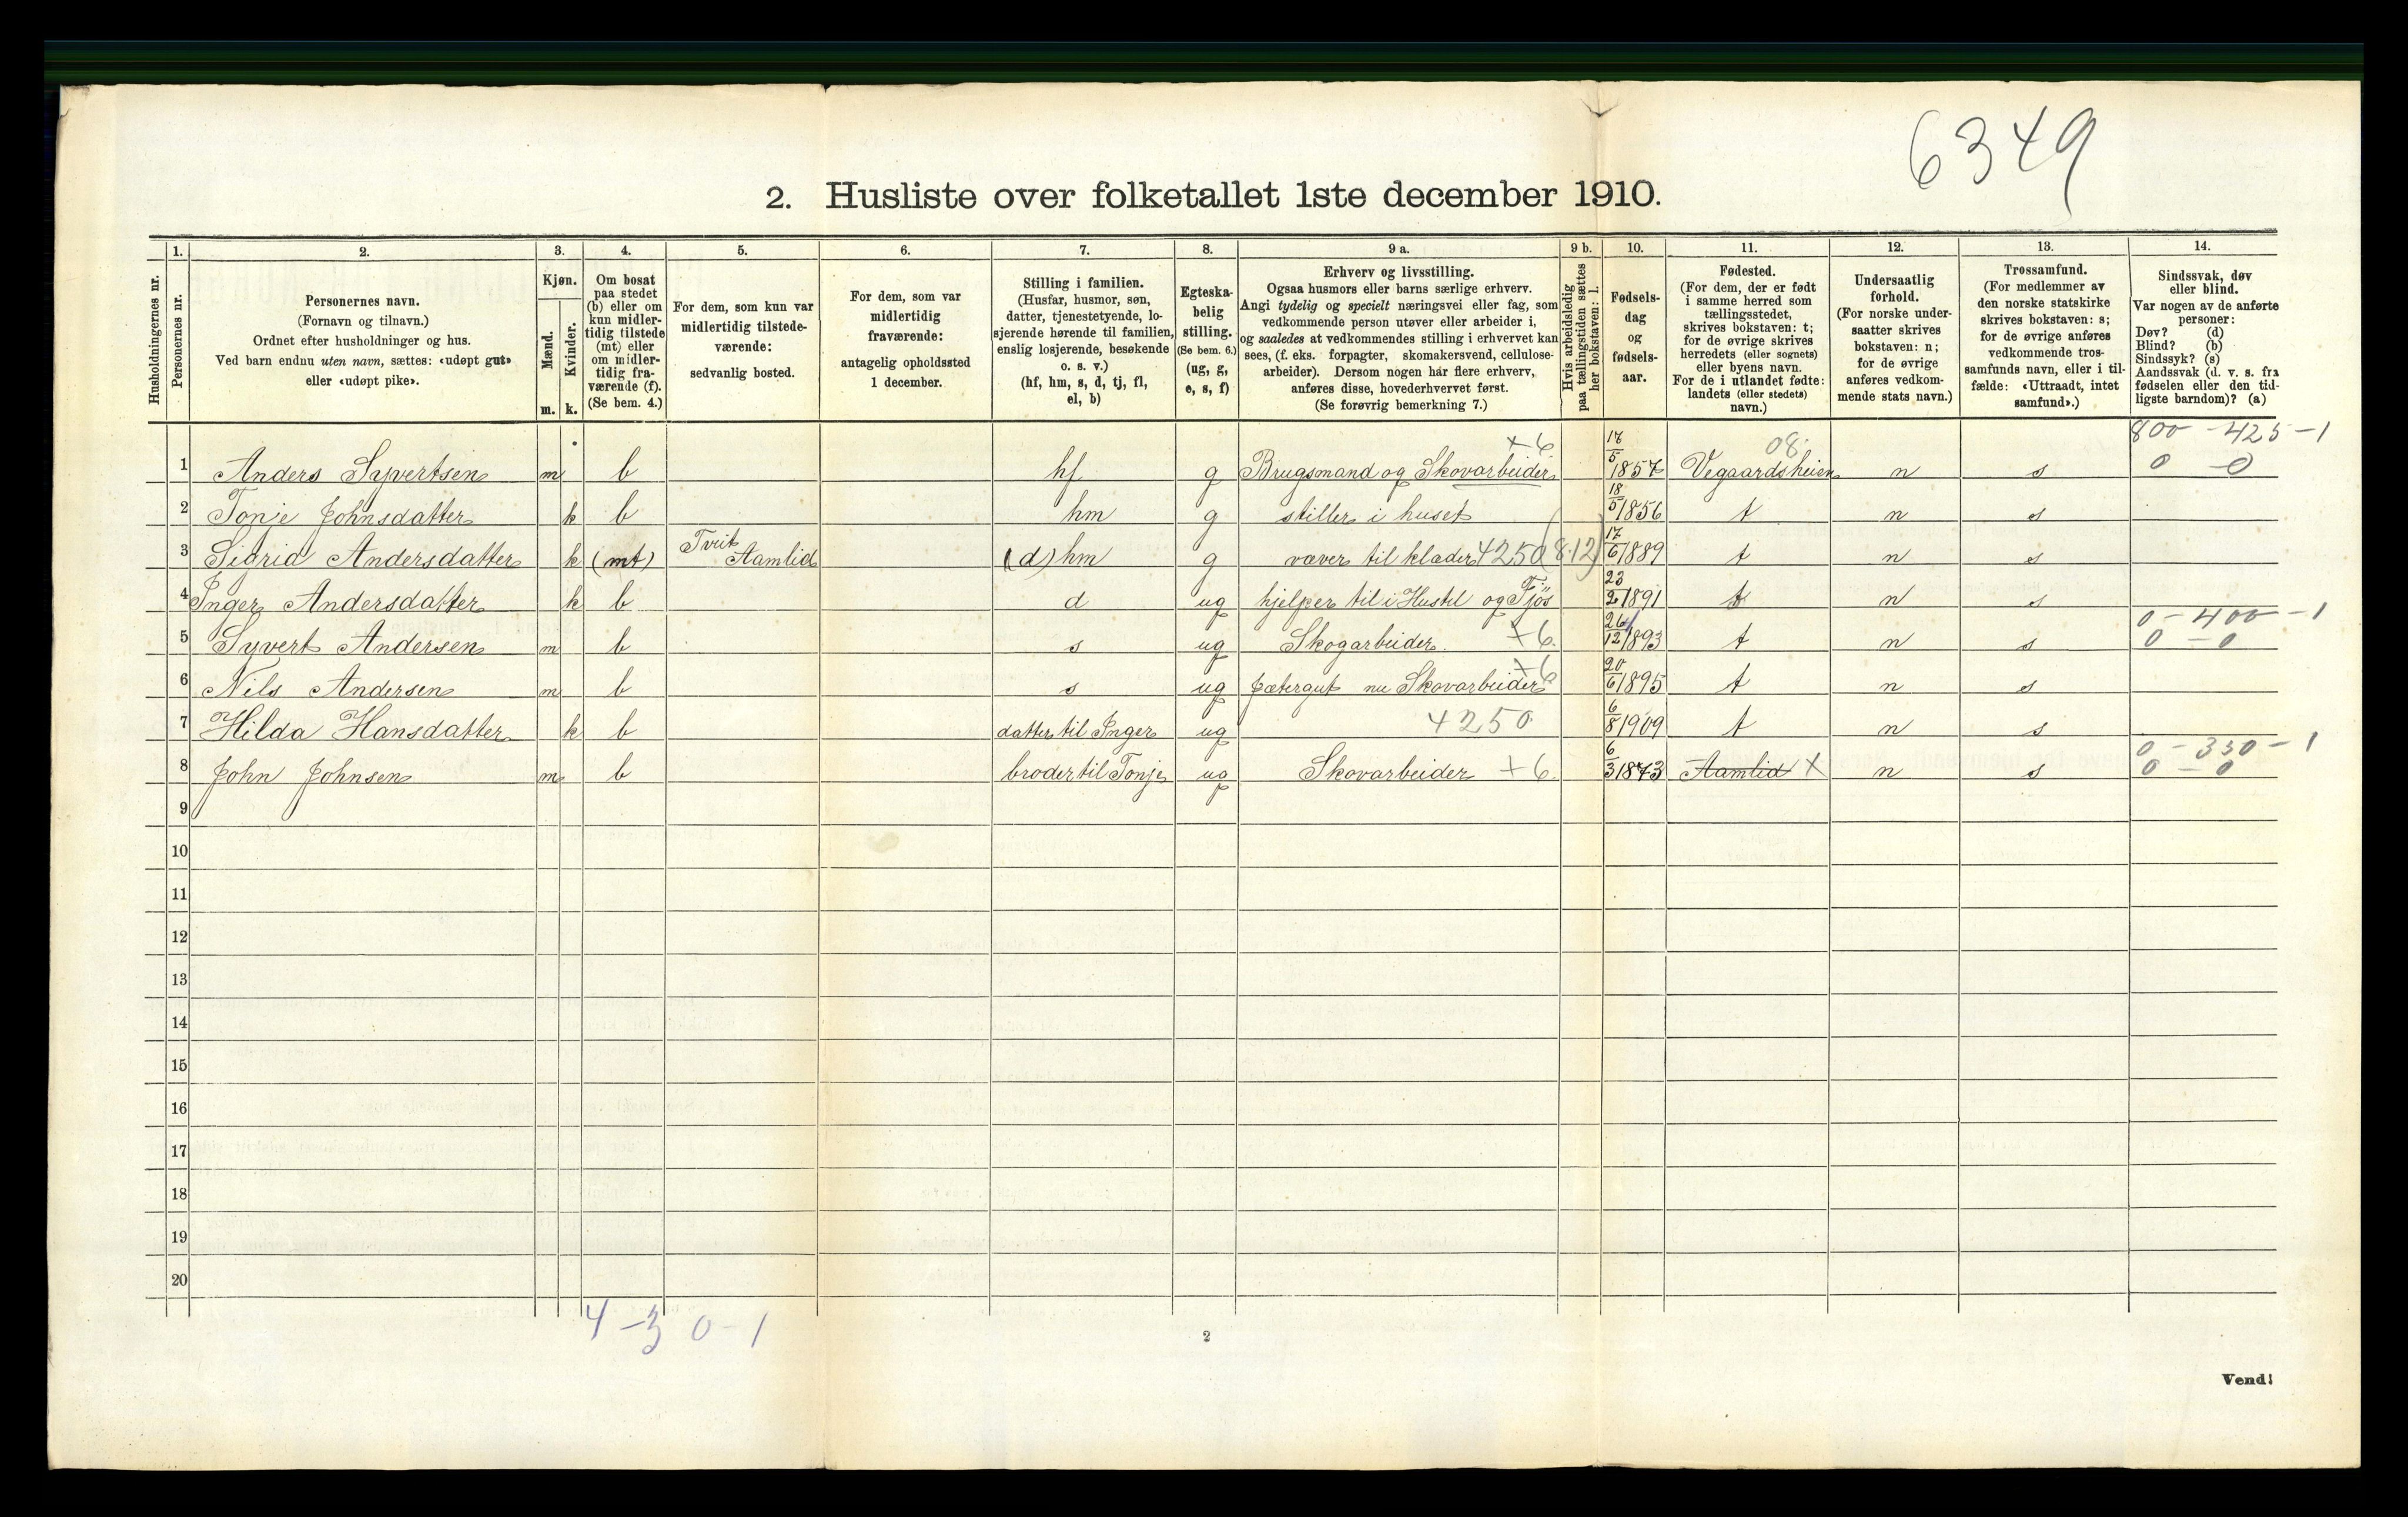 6349
2. Husliste over folketallet 1ste december 1910.
Husholdningernes nr.
1. Personernes nr.
2. Personernes navn. (Fornavn og tilnavn.) Ordnet efter husholdninger og hus. Ved barn endnu uten navn, sættes: «udøpt gut» eller «udøpt pike».
3. Kjøn. Mænd. m. Kvinder. k.
4. Om bosat paa stedet (b) eller om kun midlertidig tilstede (mt) eller om midlertidig fraværende (f). (Se bem. 4.)
5. For dem, som kun var midlertidig tilstedeværende: sedvanlig bosted.
6. For dem, som var midlertidig fraværende: antagelig opholdssted 1 december.
7. Stilling i familien. (Husfar, husmor, søn, datter, tjenestetyende, losjerende hørende til familien, enslig losjerende, besøkende o. s. v.) (hf, hm, s, d, tj, fl, el, b)
8. Egteskabelig stilling. (Se bem. 6.) (ug, g, e, s, f)
9 a. Erhverv og livsstilling. Ogsaa husmors eller barns særlige erhverv. Angi tydelig og specielt næringsvei eller fag, som vedkommende person utøver eller arbeider i, og saaledes at vedkommendes stilling i erhvervet kan sees, (f. eks. forpagter, skomakersvend, cellulosearbeider). Dersom nogen har flere erhverv, anføres disse, hovederhvervet først. (Se forøvrig bemerkning 7.)
9 b. Hvis arbeidsledig paa tællingstiden sættes her bokstaven: l.
10. Fødselsdag og fødselsaar.
11. Fødested. (For dem, der er født i samme herred som tællingsstedet, skrives bokstaven: t; for de øvrige skrives herredets (eller sognets) eller byens navn. For de i utlandet fødte: landets (eller stedets) navn.)
12. Undersaatlig forhold. (For norske undersaatter skrives bokstaven: n; for de øvrige anføres vedkommende stats navn.)
13. Trossamfund. (For medlemmer av den norske statskirke skrives bokstaven: s; for de øvrige anføres vedkommende trossamfunds navn, eller i tilfælde: «Uttraadt, intet samfund».)
14. Sindssvak, døv eller blind. Var nogen av de anførte personer: Døv? (d) Blind? (b) Sindssyk? (s) Aandssvak (d. v. s. fra fødselen eller den tidligste barndom)? (a)
+6 08 800 - 425 - 1
1 Anders Syvertsen m b hf g Brugsmand og Skovarbeider 18/5 1857 Vegaardsheien n s 0 - 0
2 Tonje Johnsdatter k b hm g steller i huset 18/5 1856 t n s
3 Sigrid Andersdatter k (mt) Tveit Aamlid (d) hm g væver til klæder 4250 (8.12) 17/6 1889 t n s
4 Inger Andersdatter k b d ug hjelper til i Hustel og Fjös 23/2 1891 t n s
0 - 400 - 1
5 Syvert Andersen m b s ug Skogarbeider +6 26/12 1893 t n s 0 - 0
6 Nils Andersen m b s ug gjætergut nu Skovarbeider +6 20/6 1895 t n s
7 Hilda Hansdatter k b datter til Inger ug 4250 6/8 1909 t n s
0 - 350 - 1
8 John Johnsen m b broder til Tonje ug Skovarbeider +6 6/3 1873 Aamlid X n s 0 - 0
9
10
11
12
13
14
15
16
17
18
19
20
4 - 3 0 - 1
2
Vend!